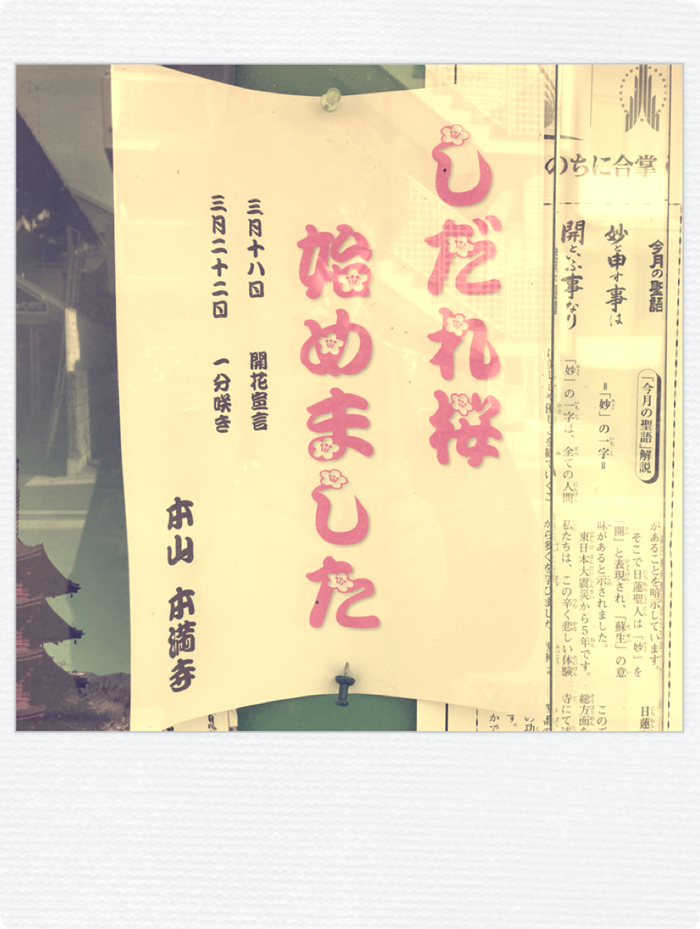 しだれ桜
始めました
三月十八日 開花宣言
三月二十二日 一分咲き
本山 本満寺
のちに合掌
今月の聖語
妙と申す事は
開とゆふ事なり
「今月の聖語」解説
＝「妙」の一字＝
「妙」の一字は、全ての人間
があることを暗示しています。
そこで日蓮聖人は「妙」を
「開」と表現され、「蘇生」の意
味があると示されました。
東日本大震災から5年です。
私たちは、この辛く悲しい体験
から多くを学びました
日蓮
このご
総方面
寺にて